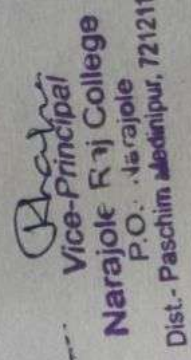 Vice-Principal
Narajole Raj College
P.O.: Narajole
Dist.- Paschim Medinipur, 721211